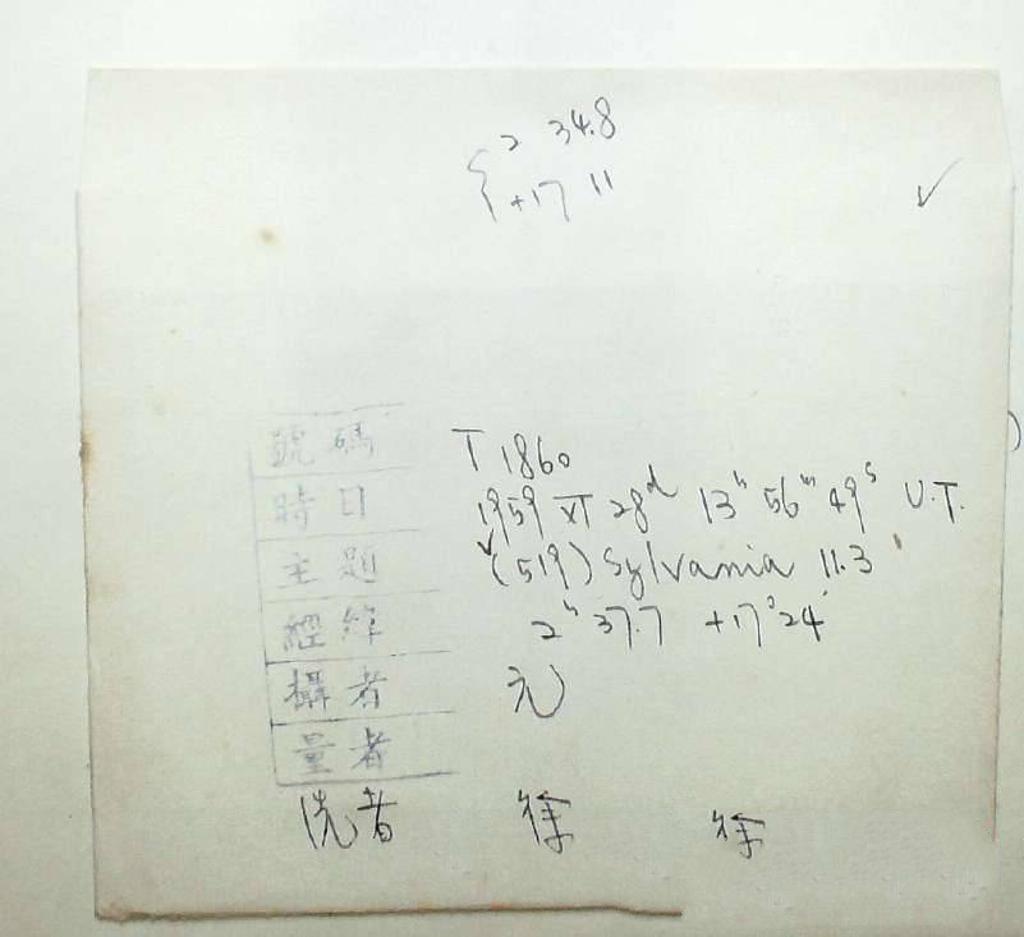 2 34.8
+17 11
號碼 T 1860
時日 1959 VI 28ᵈ 13ʰ 56ᵐ 49ˢ U.T.
主題 (519) Sylvania 11.3
經緯 2ʰ 37.7 +17°24'
攝者 元
量者
洗者 徐 徐